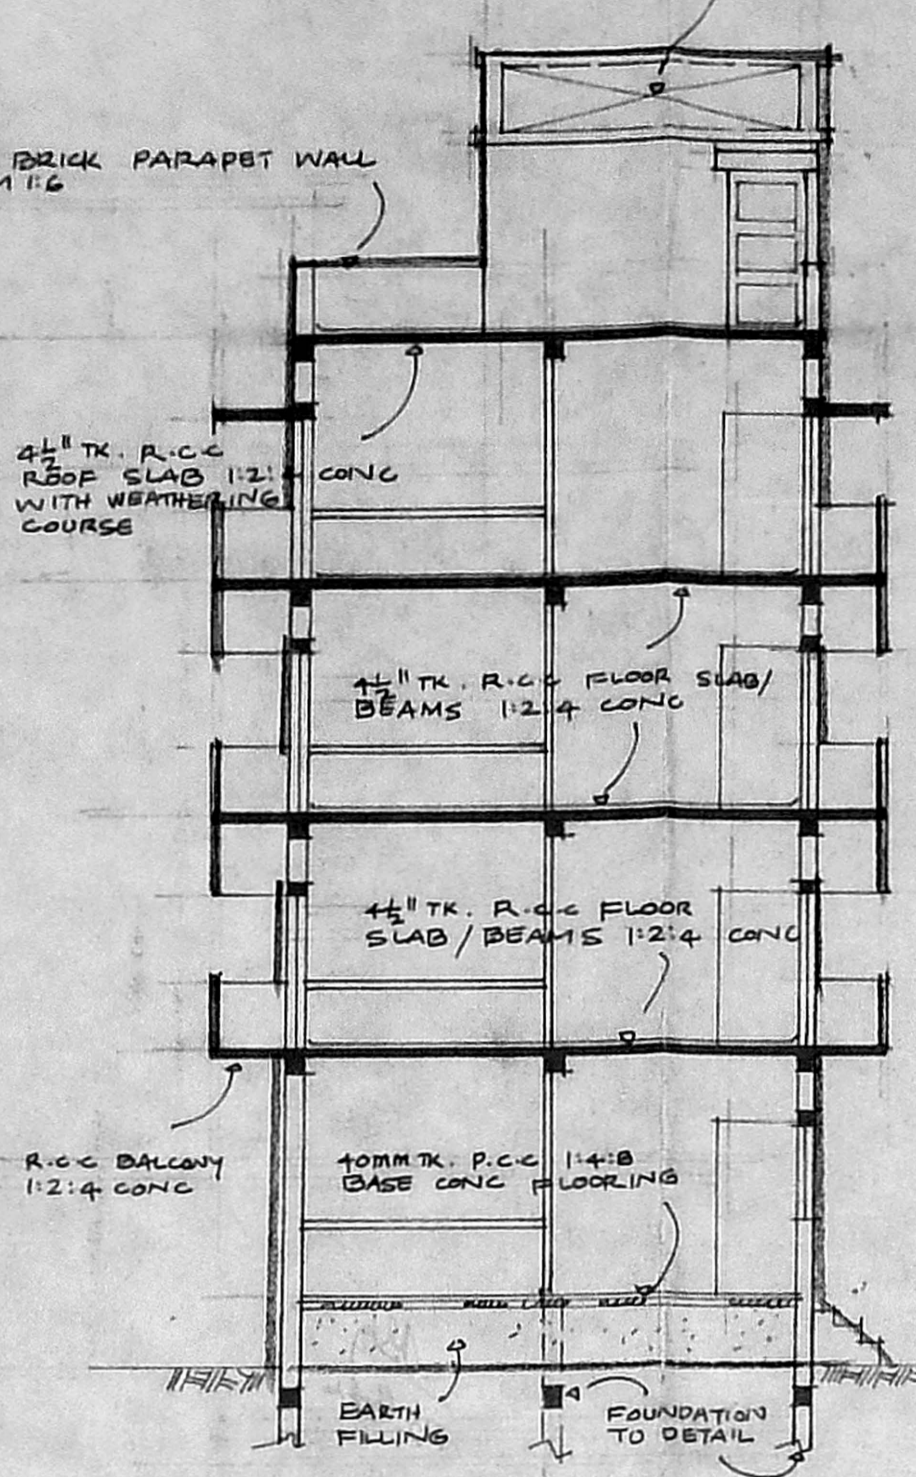 BRICK PARAPET WALL
M 1:6
4½" TK. R.C.C
ROOF SLAB 1:2:4 CONC
WITH WEATHERING
COURSE
4½" TK. R.C.C FLOOR SLAB/
BEAMS 1:2:4 CONC
4½" TK. R.C.C FLOOR
SLAB / BEAMS 1:2:4 CONC
R.C.C BALCONY
1:2:4 CONC
40MM TK. P.C.C 1:4:8
BASE CONC FLOORING
EARTH
FILLING
FOUNDATION
TO DETAIL